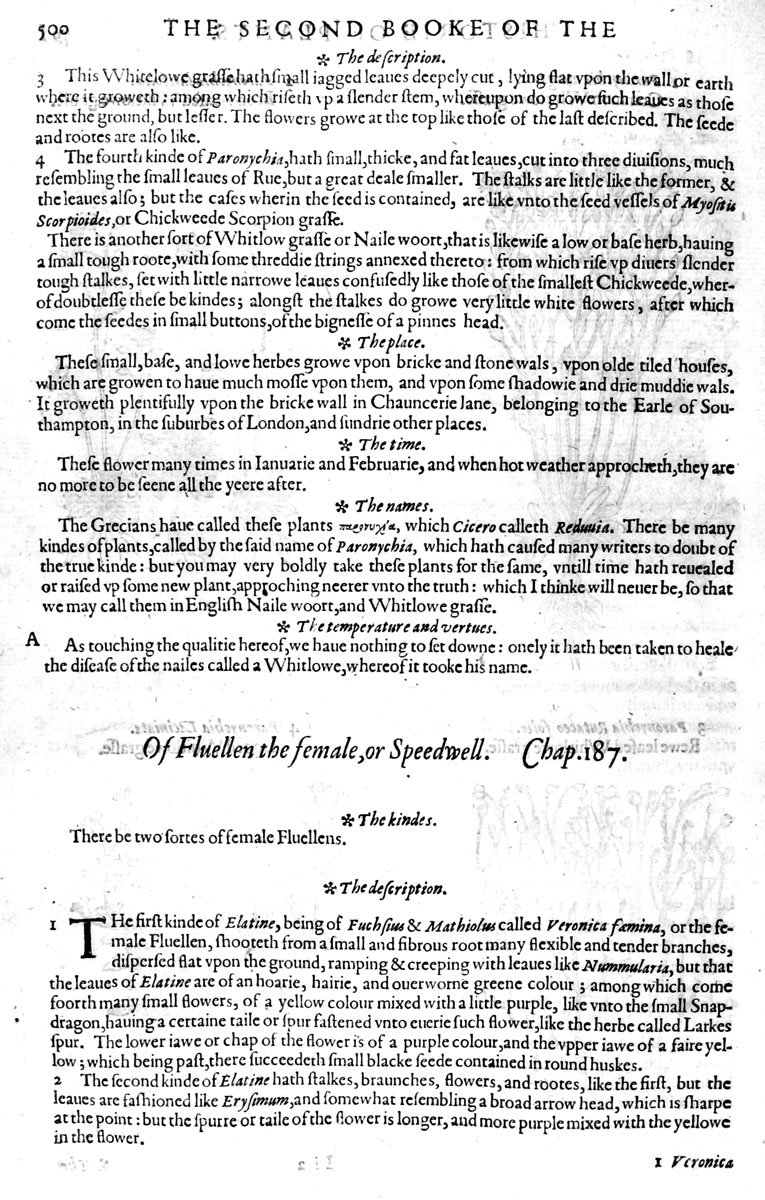 500 THE SECOND BOOKE OF THE
✻ The deſcription.
3 This Whitelowe graſſe hath ſmall iagged leaues deepely cut, lying flat vpon the wall or earth
where it groweth: among which riſeth vp a ſlender ſtem, whereupon do growe ſuch leaues as thoſe
next the ground, but leſſer. The flowers growe at the top like thoſe of the laſt deſcribed. The ſeede
and rootes are alſo like.
4 The fourth kinde of Paronychia, hath ſmall, thicke, and fat leaues, cut into three diuiſions, much
reſembling the ſmall leaues of Rue, but a great deale ſmaller. The ſtalks are little like the former, &
the leaues alſo; but the caſes wherin the ſeed is contained, are like vnto the ſeed veſſels of Myoſitis
Scorpioides, or Chickweede Scorpion graſſe.
There is another ſort of Whitlow graſſe or Naile woort, that is likewiſe a low or baſe herb, hauing
a ſmall tough roote, with ſome threddie ſtrings annexed thereto: from which riſe vp diuers ſlender
tough ſtalkes, ſet with little narrowe leaues confuſedly like thoſe of the ſmalleſt Chickweede, wher-
of doubtleſſe theſe be kindes; alongſt the ſtalkes do growe very little white flowers, after which
come the ſeedes in ſmall buttons, of the bigneſſe of a pinnes head.
✻ The place.
Theſe ſmall, baſe, and lowe herbes growe vpon bricke and ſtone wals, vpon olde tiled houſes,
which are growen to haue much moſſe vpon them, and vpon ſome ſhadowie and drie muddie wals.
It groweth plentifully vpon the bricke wall in Chauncerie lane, belonging to the Earle of Sou-
thampton, in the ſuburbes of London, and ſundrie other places.
✻ The time.
Theſe flower many times in Ianuarie and Februarie, and when hot weather approcheth, they are
no more to be ſeene all the yeere after.
✻ The names.
The Grecians haue called theſe plants παρονυχία, which Cicero calleth Reduuia. There be many
kindes of plants, called by the ſaid name of Paronychia, which hath cauſed many writers to doubt of
the true kinde: but you may very boldly take theſe plants for the ſame, vntill time hath reuealed
or raiſed vp ſome new plant, approching neerer vnto the truth: which I thinke will neuer be, ſo that
we may call them in Engliſh Naile woort, and Whitlowe graſſe.
✻ The temperature and vertues.
A As touching the qualitie hereof, we haue nothing to ſet downe: onely it hath been taken to heale
the diſeaſe of the nailes called a Whitlowe, whereof it tooke his name.
Of Fluellen the female, or Speedwell. Chap. 187.
✻ The kindes.
There be two ſortes of female Fluellens.
✻ The deſcription.
1 THe firſt kinde of Elatine, being of Fuchſius & Mathiolus called Veronica fæmina, or the fe-
male Fluellen, ſhooteth from a ſmall and fibrous root many flexible and tender branches,
diſperſed flat vpon the ground, ramping & creeping with leaues like Nummularia, but that
the leaues of Elatine are of an hoarie, hairie, and ouerworne greene colour; among which come
foorth many ſmall flowers, of a yellow colour mixed with a little purple, like vnto the ſmall Snap-
dragon, hauing a certaine taile or ſpur faſtened vnto euerie ſuch flower, like the herbe called Larkes
ſpur. The lower iawe or chap of the flower is of a purple colour, and the vpper iawe of a faire yel-
low; which being paſt, there ſucceedeth ſmall blacke ſeede contained in round huskes.
2 The second kinde of Elatine hath ſtalkes, braunches, flowers, and rootes, like the firſt, but the
leaues are faſhioned like Eryſimum, and ſomewhat reſembling a broad arrow head, which is ſharpe
at the point: but the ſpurre or taile of the flower is longer, and more purple mixed with the yellowe
in the flower.
1 Veronica